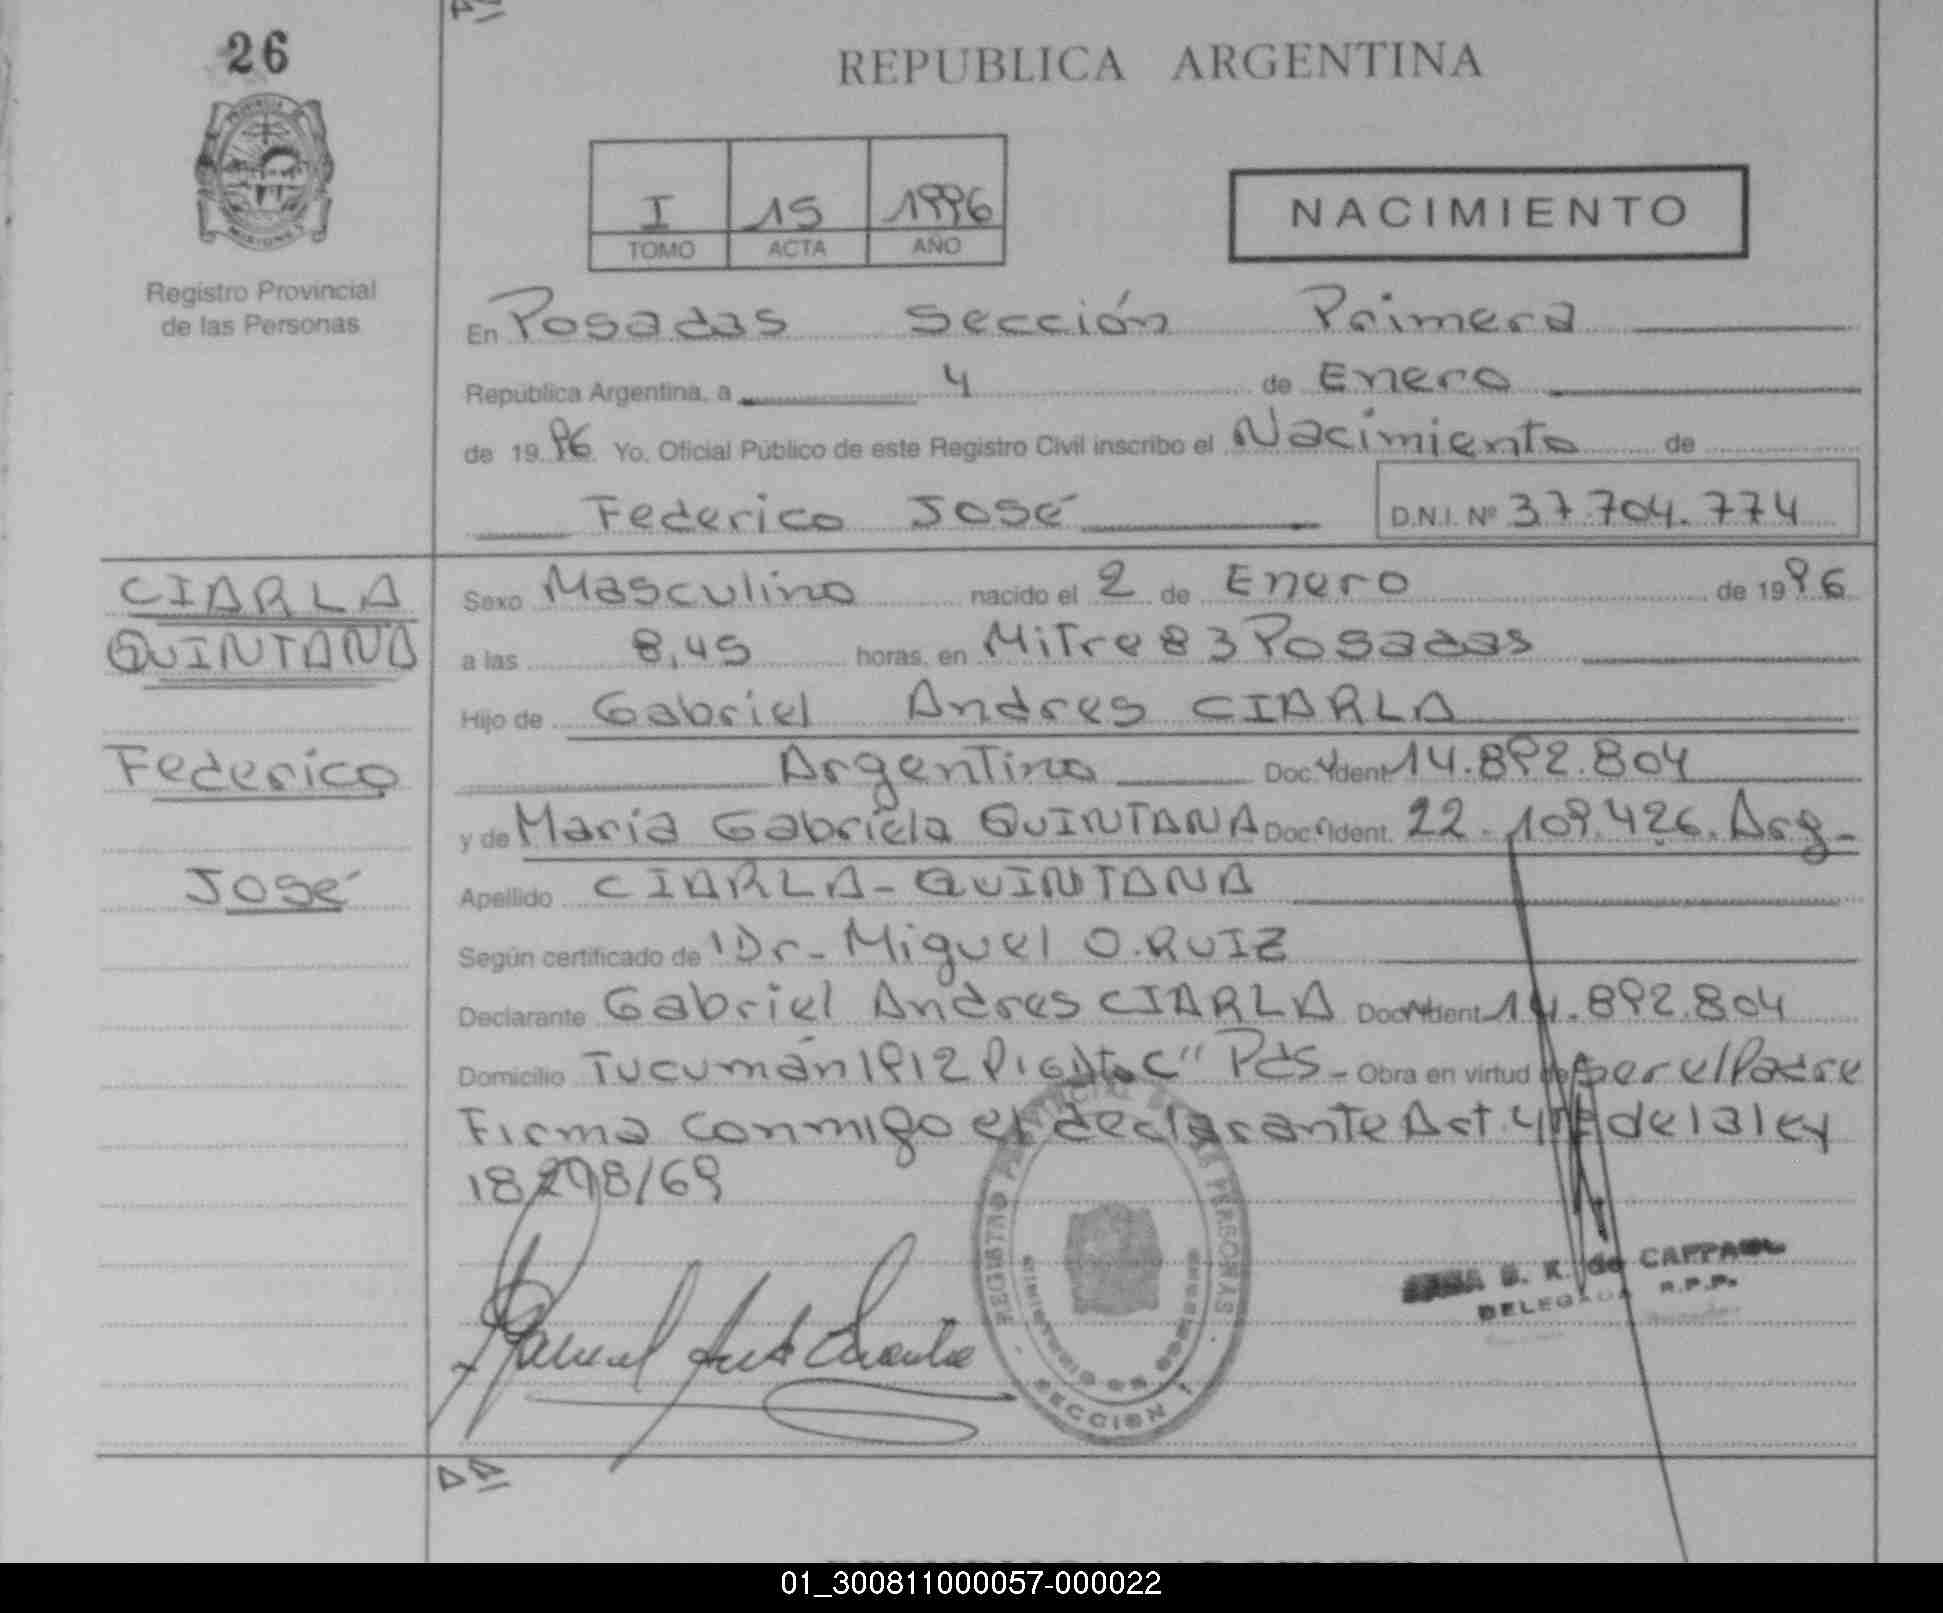 26
REPUBLICA ARGENTINA
PROVINCIA
MISIONES
Registro Provincial
de las Personas
I 15 1996
TOMO ACTA AÑO
NACIMIENTO
En Posadas Sección Primera
República Argentina, a 4 de Enero
de 1996 Yo, Oficial Público de este Registro Civil inscribo el Nacimiento de
Federico José D.N.I. Nº 37.704.774
CIARLA
QUINTANA
Federico
José
Sexo Masculino nacido el 2 de Enero de 1996
a las 8,45 horas, en Mitre 83 Posadas
Hijo de Gabriel Andres CIARLA
Argentino Doc. Ident. 14.892.804
y de Maria Gabriela QUINTANA Doc. Ident. 22.109.426. Arg-
Apellido CIARLA-QUINTANA
Según certificado de Dr- Miguel O. RUIZ
Declarante Gabriel Andres CIARLA Doc. Ident. 14.892.804
Domicilio Tucumán 1912 C" Pds- Obra en virtud de ser el Padre
Firma conmigo el declarante Art. de la ley
18298/69
REGISTRO PROVINCIAL DE LAS PERSONAS
MINISTERIO DE GOBIERNO
SECCION 1
B. K. de
DELEGADA R.P.P.
01_300811000057-000022